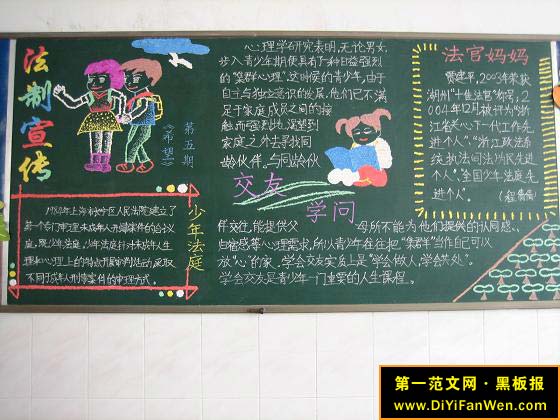 法制宣传
《希望》
第五期
心理学研究表明,无论男女,
步入青少年期便具有了种日益强烈
的"集群心理"。这时候的青少年,由于
自主与独立意识的发展,他们已不满
足于家庭成员之间的接
触,而强烈地渴望到
家庭之外去寻找同
龄伙伴。与同龄伙
交友
学问
伴交往,能提供父母所不能为他们提供的认同感、
归宿感等心理需求,所以青少年往往把"集群"当作自己可以
放"心"的家。学会交友实际上是"学会做人,学会共处"。
学会交友是青少年一门重要的人生课程。
法官妈妈
贾建平,2003年荣获
湖州"十佳法官"称号;2
004年12月被评为"浙
江省关心下一代工作先
进个人"、"浙江政法系
统执法司法为民先进
个人"、全国少年法庭先
进个人"。
少年法庭
1984年上海市长宁区人民法院建立了
第一个专门审理未成年人刑事案件的合议
庭,既少年法庭。少年法庭针对未成年人生
理和心理上的特点开展审判活动,采取
不同于成年人刑事案件的审理方式。
第一范文网·黑板报
www.DiYiFanWen.com